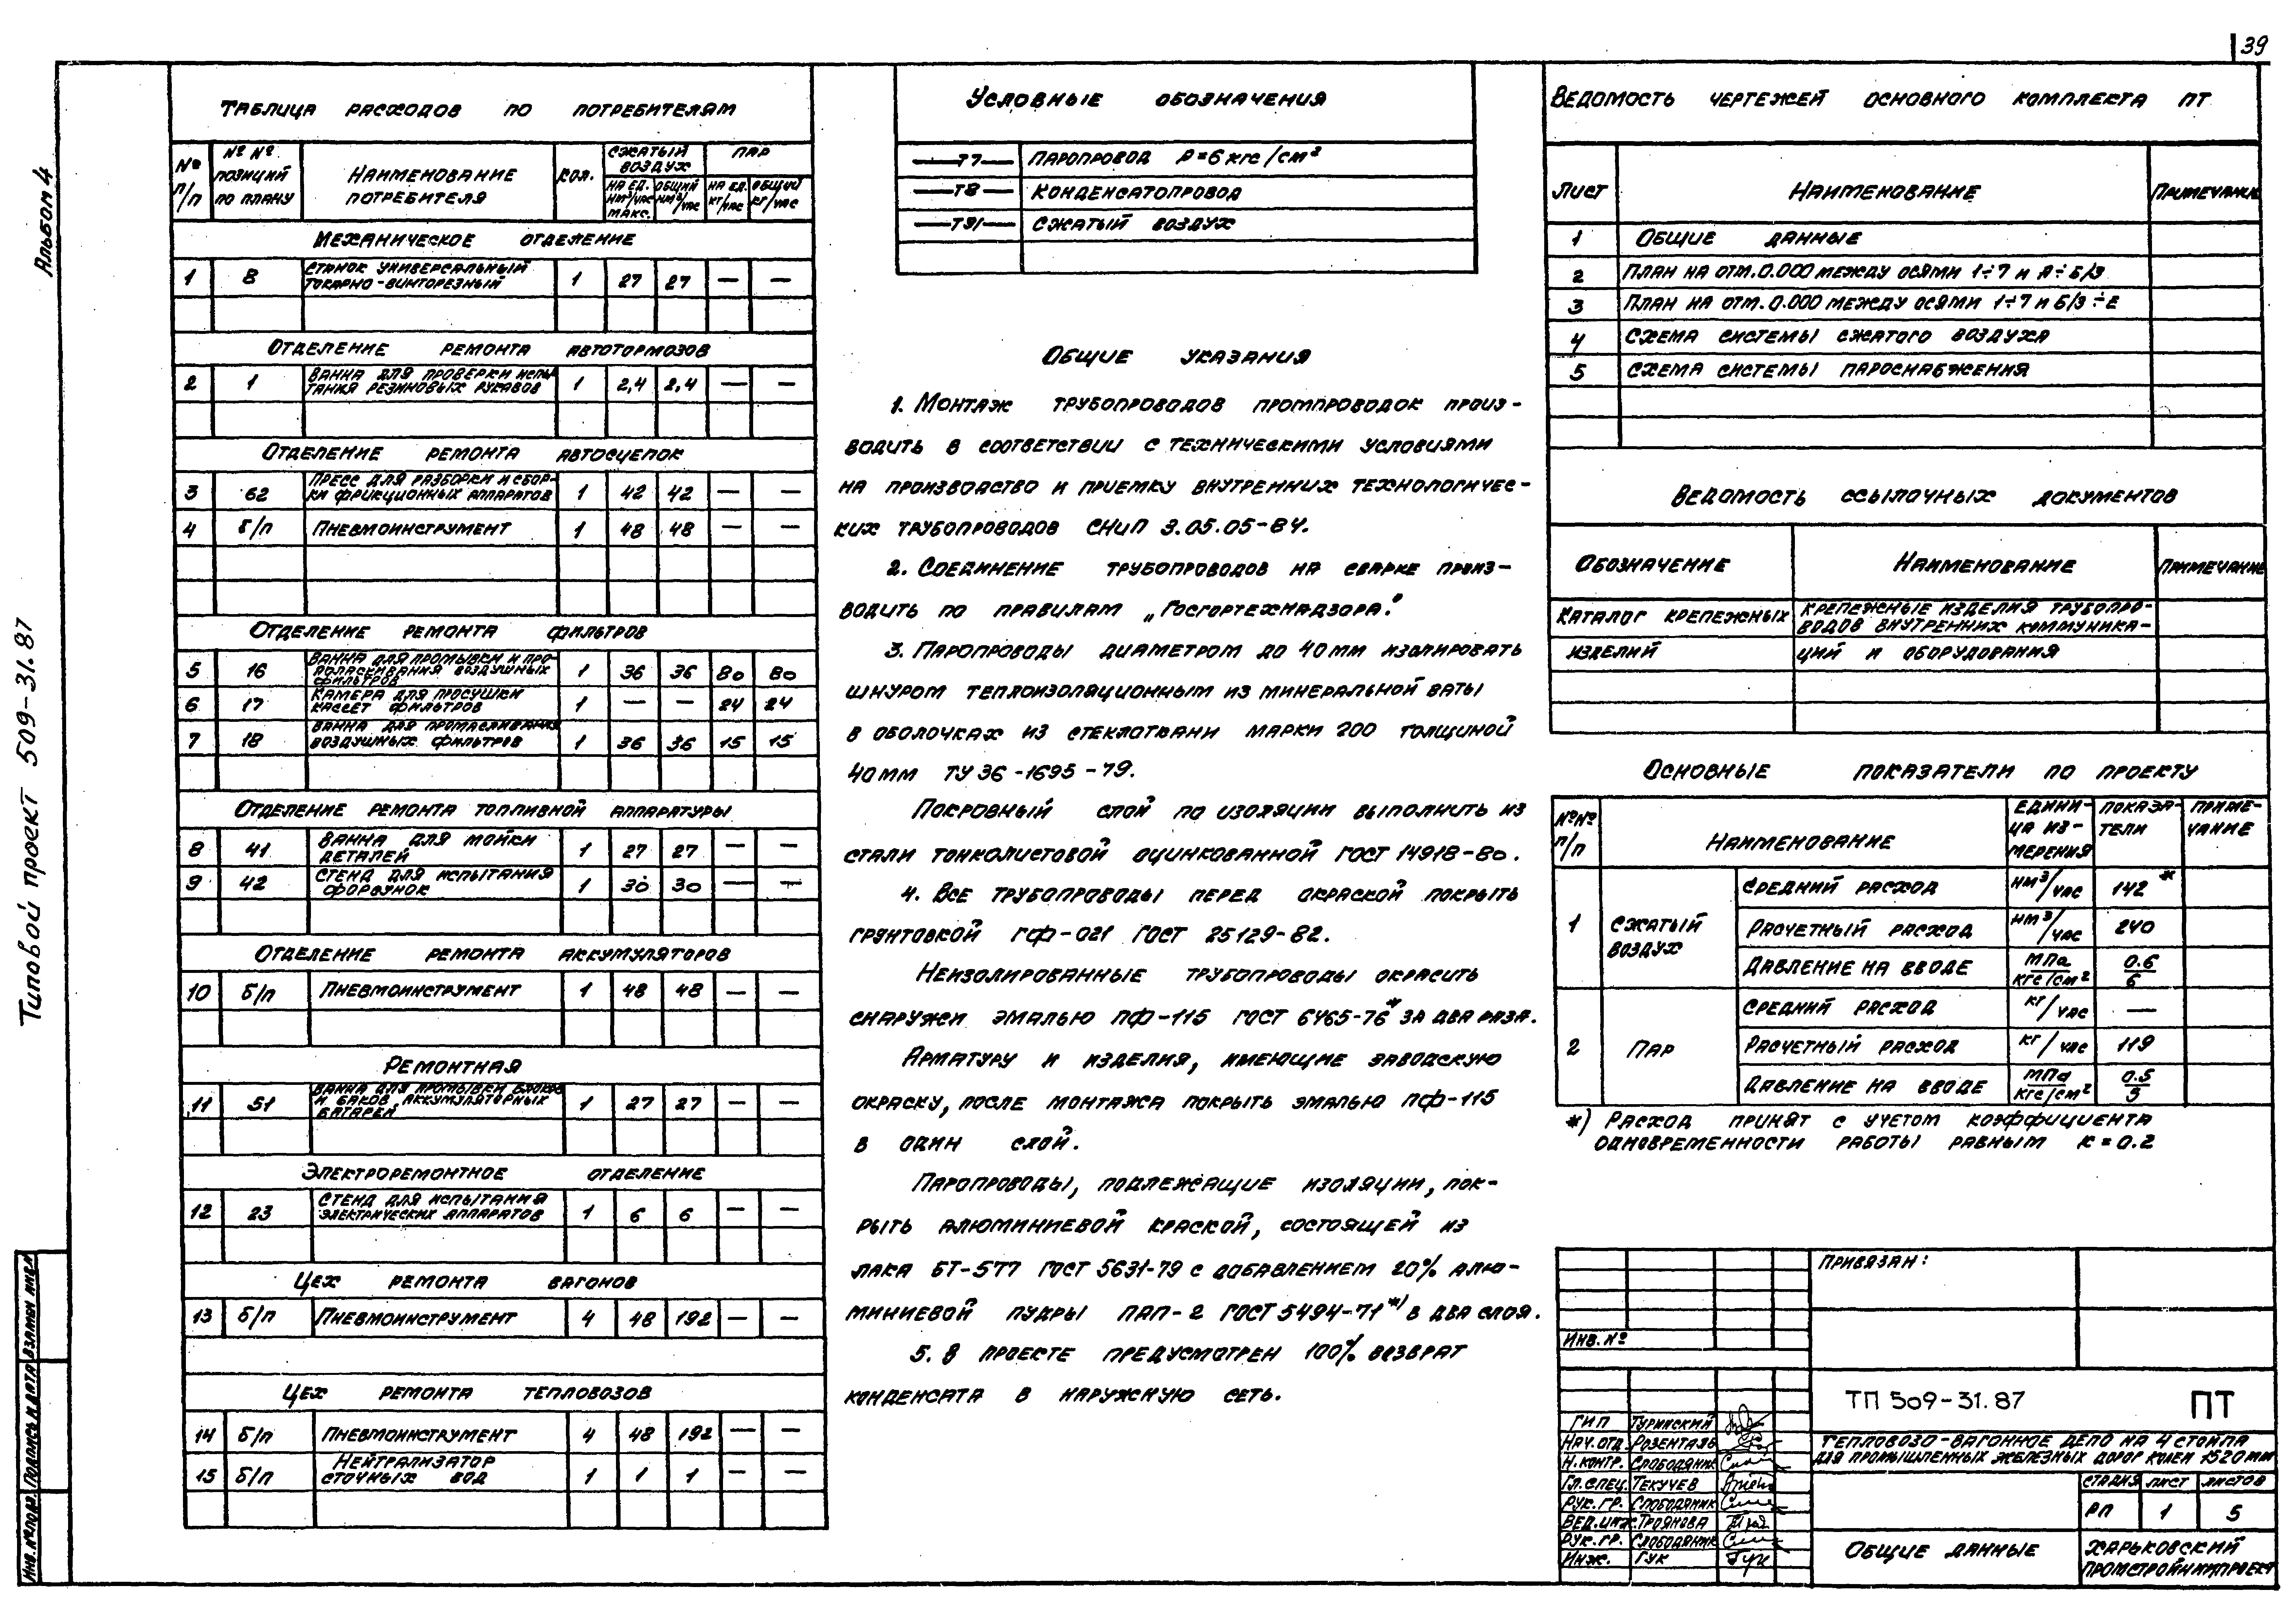 39
Альбом 4
Типовой проект 509-31.87
Таблица расходов по потребителям
№ п/п
№ № позиций по плану
Наименование потребителя
Кол.
Сжатый воздух
Пар
на ед. нм³/час макс.
общий нм³/час
на ед. кг/час
общий кг/час
Механическое отделение
1 8 Станок универсальный токарно-винторезный 1 27 27 — —
Отделение ремонта автотормозов
2 1 Ванна для проверки испытания резиновых рукавов 1 2,4 2,4 — —
Отделение ремонта автосцепок
3 62 Пресс для разборки и сборки фрикционных аппаратов 1 42 42 — —
4 б/п Пневмоинструмент 1 48 48 — —
Отделение ремонта фильтров
5 16 Ванна для промывки и прополаскивания воздушных фильтров 1 36 36 80 80
6 17 Камера для просушки кассет фильтров 1 — — 24 24
7 18 Ванна для промасливания воздушных фильтров 1 36 36 15 15
Отделение ремонта топливной аппаратуры
8 41 Ванна для мойки деталей 1 27 27 — —
9 42 Стенд для испытания форсунок 1 30 30 — —
Отделение ремонта аккумуляторов
10 б/п Пневмоинструмент 1 48 48 — —
Ремонтная
11 51 Ванна для промывки блоков и баков аккумуляторных батарей 1 27 27 — —
Электроремонтное отделение
12 23 Стенд для испытания электрических аппаратов 1 6 6 — —
Цех ремонта вагонов
13 б/п Пневмоинструмент 4 48 192 — —
Цех ремонта тепловозов
14 б/п Пневмоинструмент 4 48 192 — —
15 б/п Нейтрализатор сточных вод 1 1 1 — —
Условные обозначения
—Т7— Паропровод Р=6 кгс/см²
—Т8— Конденсатопровод
—Т91— Сжатый воздух
Общие указания
1. Монтаж трубопроводов промпроводок произ-
водить в соответствии с техническими условиями
на производство и приемку внутренних технологичес-
ких трубопроводов СНиП 3.05.05-84.
2. Соединение трубопроводов на сварке произ-
водить по правилам „Госгортехнадзора."
3. Паропроводы диаметром до 40мм изолировать
шнуром теплоизоляционным из минеральной ваты
в оболочках из стеклоткани марки 200 толщиной
40мм ТУ 36-1695-79.
Покровный слой по изоляции выполнить из
стали тонколистовой оцинкованной ГОСТ 14918-80.
4. Все трубопроводы перед окраской покрыть
грунтовкой ГФ-021 ГОСТ 25129-82.
Неизолированные трубопроводы окрасить
снаружи эмалью ПФ-115 ГОСТ 6465-76* за два раза.
Арматуру и изделия, имеющие заводскую
окраску, после монтажа покрыть эмалью ПФ-115
в один слой.
Паропроводы, подлежащие изоляции, пок-
рыть алюминиевой краской, состоящей из
лака БТ-577 ГОСТ 5631-79 с добавлением 20% алю-
миниевой пудры ПАП-2 ГОСТ 5494-71*) в два слоя.
5. В проекте предусмотрен 100% возврат
конденсата в наружную сеть.
Ведомость чертежей основного комплекта ПТ
Лист Наименование Примечание
1 Общие данные
2 План на отм. 0.000 между осями 1÷7 и А÷Б/3
3 План на отм. 0.000 между осями 1÷7 и Б/3÷Е
4 Схема системы сжатого воздуха
5 Схема системы пароснабжения
Ведомость ссылочных документов
Обозначение Наименование Примечание
Каталог крепежных изделий
Крепежные изделия трубопро-
водов внутренних коммуника-
ций и оборудования
Основные показатели по проекту
№№ п/п Наименование Едини-ца из-мерения Показа-тели Приме-чание
1 Сжатый воздух
Средний расход нм³/час 142*
Расчетный расход нм³/час 240
Давление на вводе МПа/кгс/см² 0.6/6
2 Пар
Средний расход кг/час —
Расчетный расход кг/час 119
Давление на вводе МПа/кгс/см² 0.5/5
*) Расход принят с учетом коэффициента
одновременности работы равным К=0.2
Привязан:
Инв. №
ТП 509-31.87 ПТ
Тепловозо-вагонное депо на 4 стойла
для промышленных железных дорог колеи 1520мм
ГИП Туринский
Нач.отд. Розенталь
Н.контр. Слободяник
Гл.спец. Текучев
Рук.гр. Слободяник
Вед.инж. Троянова
Рук.гр. Слободяник
Инж. Гук
Стадия Лист Листов
РП 1 5
Общие данные
Харьковский
Промстройниипроект
Инв.№ подл. Подпись и дата Взамен инв.№